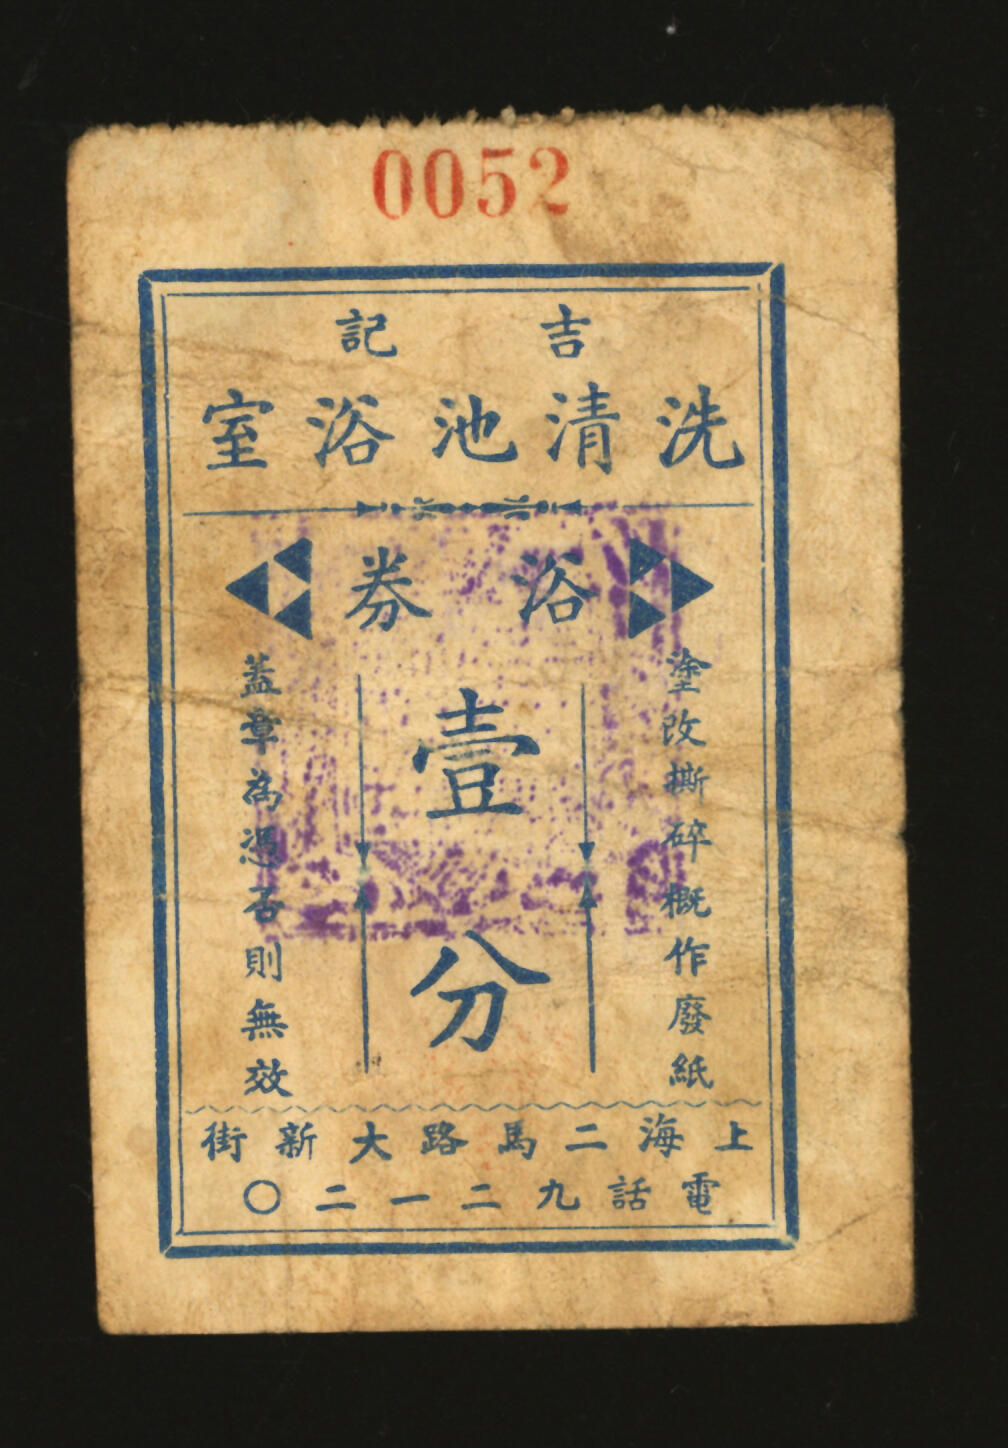 0052
吉記
洗清池浴室
浴券
塗改撕碎概作廢紙
壹分
蓋章為憑否則無效
上海二馬路大新街
電話九二一二〇